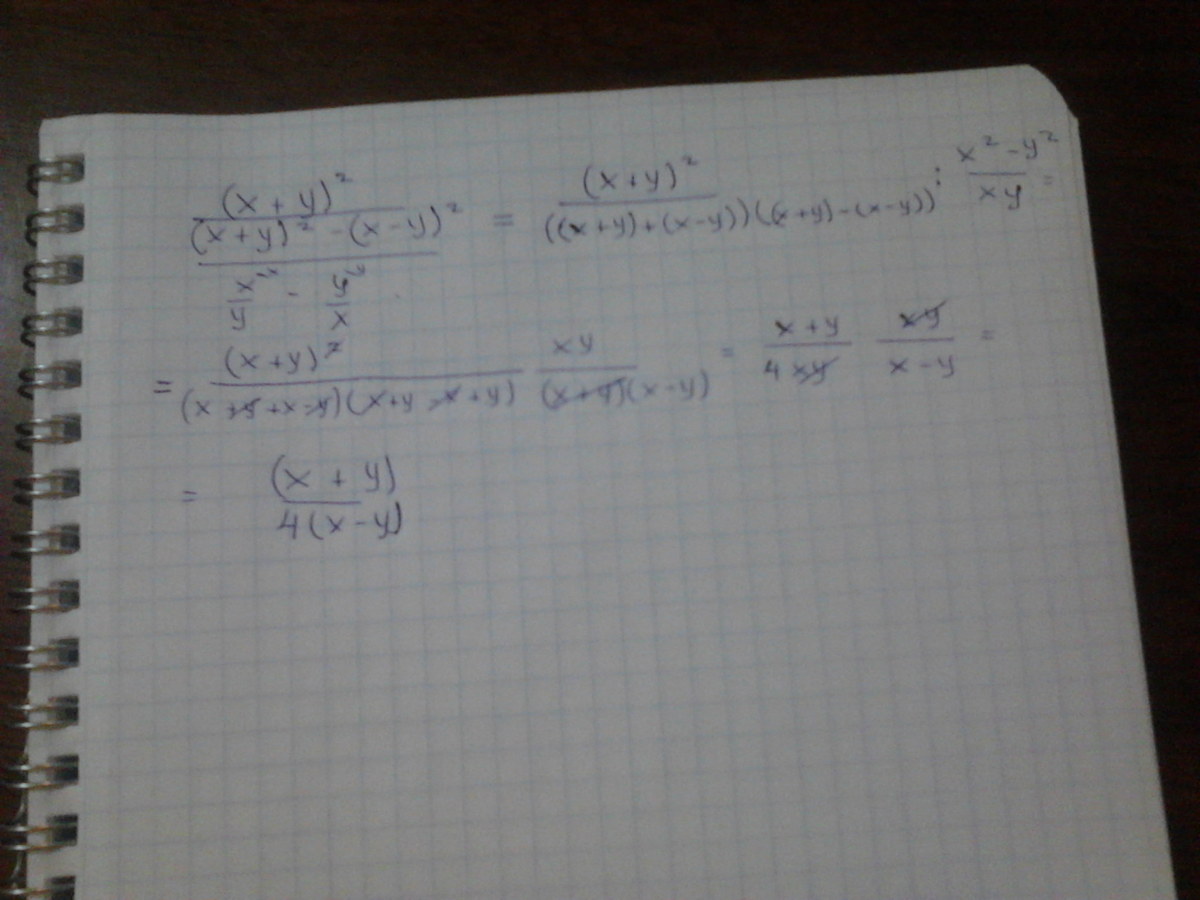 (x+y)² / ((x+y)² - (x-y)²) / (x²/y - y²/x) = (x+y)² / ((x+y)+(x-y))((x+y)-(x-y)) : (x²-y²)/(xy) =
= (x+y)² / (x+y+x-y)(x+y-x+y) xy / (x+y)(x-y) = (x+y)/(4xy) xy/(x-y) =
= (x+y) / 4(x-y)